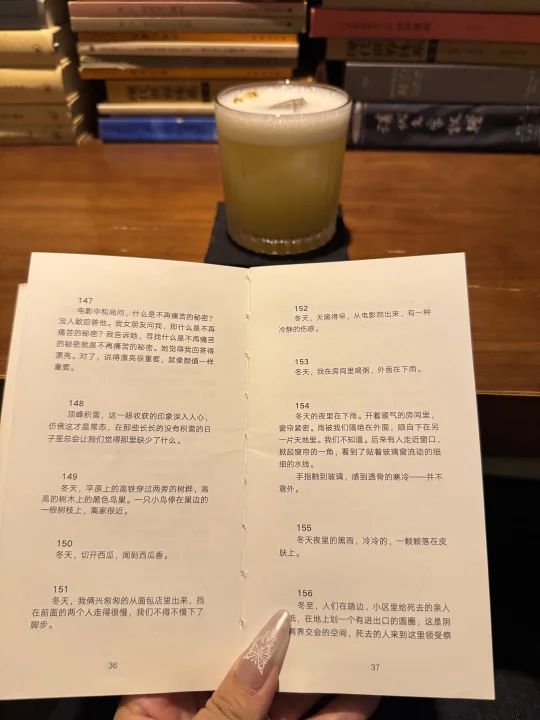 147
电影中和尚问，什么是不再痛苦的秘密？
没人敢回答他。我女朋友问我，那什么是不再
痛苦的秘密？我告诉她，寻找什么是不再痛苦
的秘密就是不再痛苦的秘密。她觉得我回答得
漂亮。对了，说得漂亮很重要，就像颜值一样
重要。
148
顶峰积雪，这一眼收获的印象深入人心，
仿佛这才是常态，在那些长长的没有积雪的日
子里总会让我们觉得那里缺少了什么。
149
冬天，平原上的高铁穿过两旁的树群，高
高的树木上的黑色鸟巢。一只小鸟停在巢边的
一根树枝上，离家很近。
150
冬天，切开西瓜，闻到西瓜香。
151
冬天，我俩兴匆匆的从面包店里出来，挡
在前面的两个人走得很慢，我们不得不慢下了
脚步。
36
152
冬天，天黑得早，从电影院出来，有一种
冷静的伤感。
153
冬天，我在房间里喝粥，外面在下雨。
154
冬天的夜里在下雨。开着暖气的房间里，
窗帘紧密。雨被我们隔绝在外面，顾自下在另
一片天地里。我们不知道。后来有人走近窗口，
掀起窗帘的一角，看到了贴着玻璃窗流动的细
细的水线。
手指触到玻璃，感到透骨的寒冷——并不
意外。
155
冬天夜里的黑雨，冷冷的，一颗颗落在皮
肤上。
156
冬至，人们在路边、小区里给死去的亲人
纸，在地上划一个有进出口的圆圈，这是阴
两界交会的空间，死去的人来到这里领受祭
37